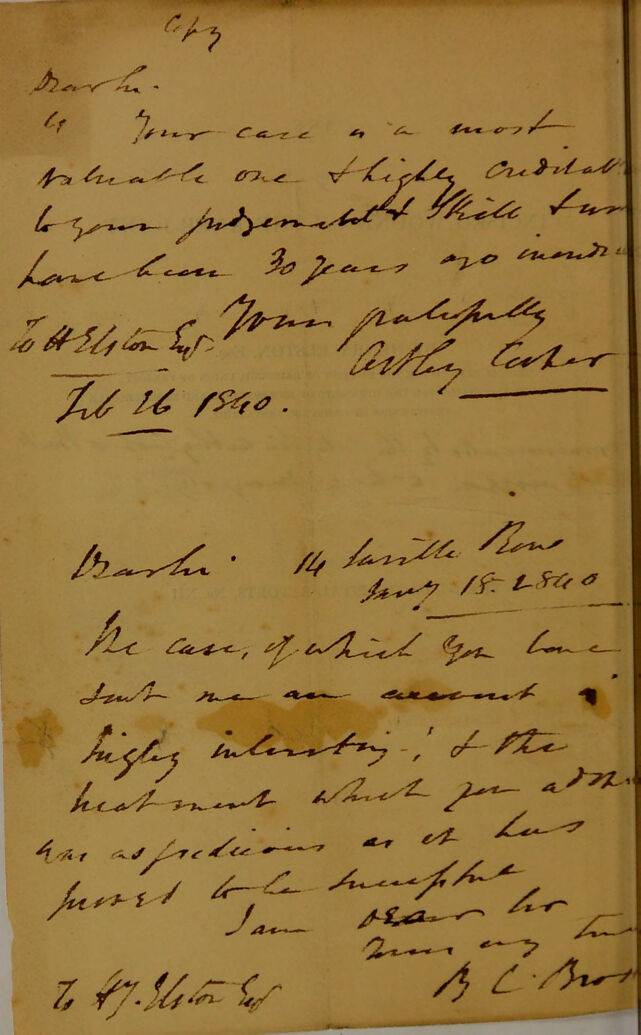 Copy
Dear Sir.
Your case is a most
valuable one & highly creditab
to your judgement & Skill &
have been 30 years ago
Yours gratefully
To H Elston Esq.
Astley Cooper
Feb 26 1840.
Dear Sir. 14 Saville Row
Jany 18. 1840
The case, of which you have
sent me an account is
highly interesting, & the
treatment which you
was as judicious as it has
proved to be successful
I am Dear Sir
Yours very
B C. Bro
To H J. Elston Esq